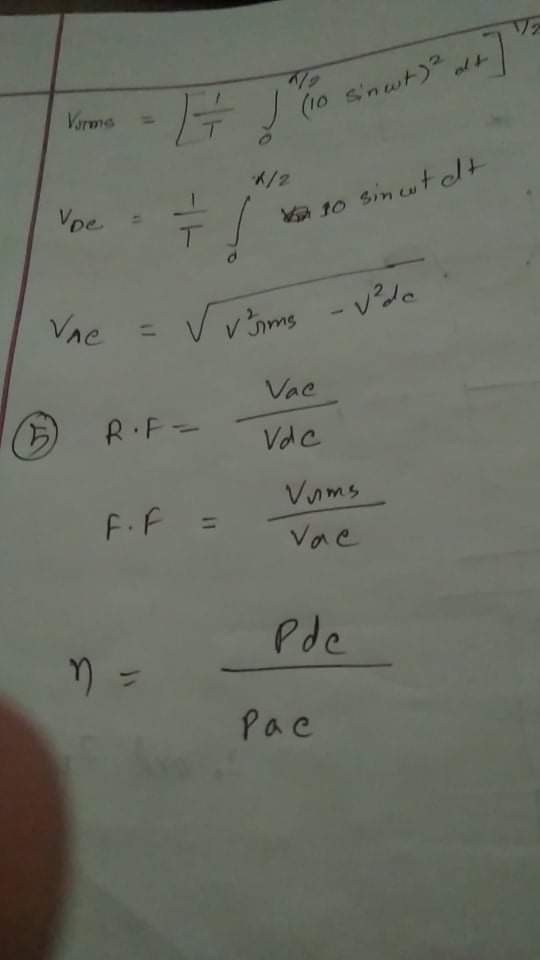 Vrms = [1/T ∫₀^(π/2) (10 sin ωt)² dt]^1/2
VDC = 1/T ∫₀^(π/2) 10 sin ωt dt
VAC = √(V²rms - V²dc)
⑤ R.F = Vac / Vdc
F.F = Vrms / Vac
η = Pdc / Pac